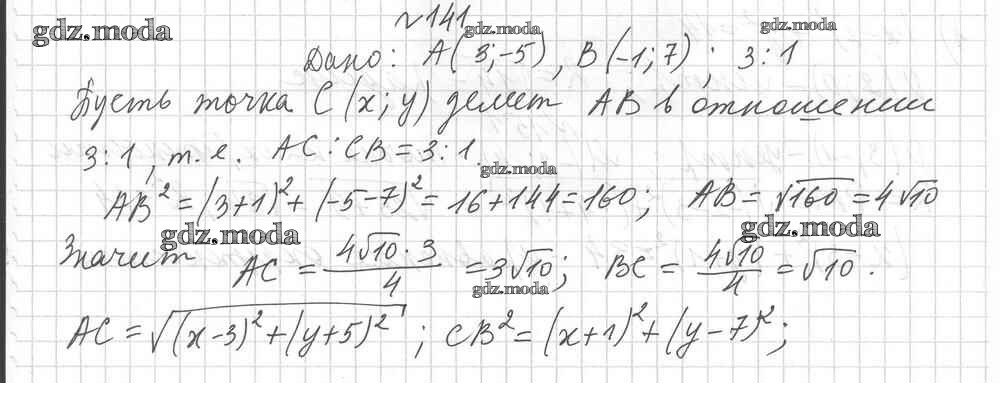 №141
gdz.moda
gdz.moda
gdz.moda
Дано: A(3;-5), B(-1;7); 3:1
Пусть точка C(x;y) делит AB в отношении
3:1, т.е. AC:CB=3:1.
gdz.moda
AB²=(3+1)²+(-5-7)²=16+144=160; AB=√160=4√10
gdz.moda
gdz.moda
Значит AC = 4√10·3/4 = 3√10; BC = 4√10/4 = √10.
gdz.moda
AC=√((x-3)²+(y+5)²); CB²=(x+1)²+(y-7)²;